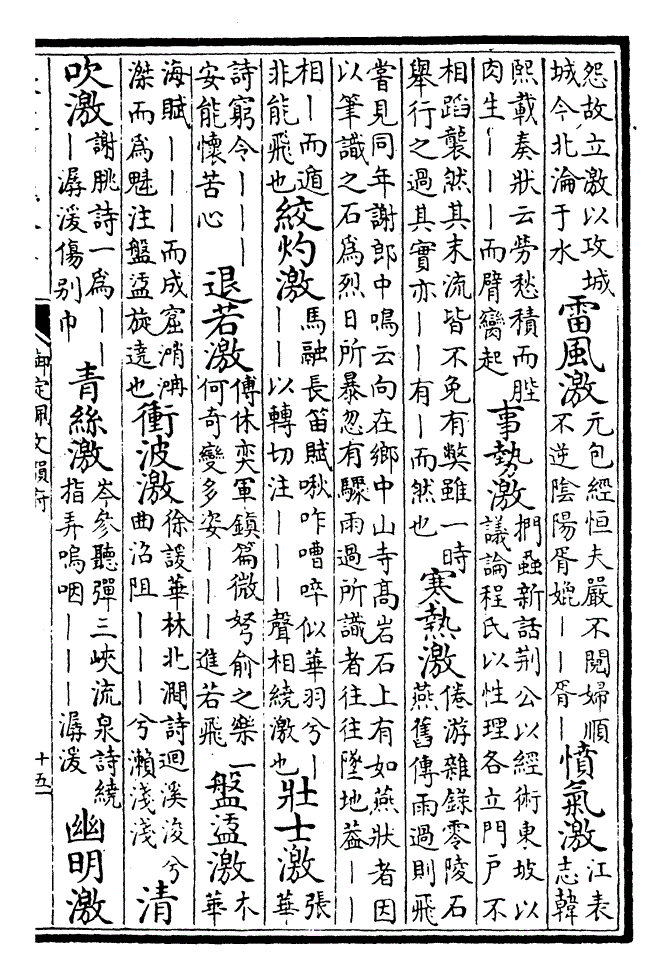 怨故立激以攻城
城今北淪于水
雷風激
元包經恒夫嚴不閱婦順
不逆陰陽胥媲｜｜胥｜
憤氣激
江表
志韓
熙載奏狀云勞愁積而胜
肉生｜｜｜而臂臠起
事勢激
捫蝨新話荆公以經術東坡以
議論程氏以性理各立門戶不
相蹈襲然其末流皆不免有獘雖一時
舉行之過其實亦｜｜有｜而然也
寒熱激
倦游雜録零陵石
燕舊傳雨過則飛
嘗見同年謝郎中鳴云向在鄉中山寺高岩石上有如燕狀者因
以筆識之石爲烈日所暴忽有驟雨過所識者往往墜地葢｜｜
相｜而遁
非能飛也
絞灼激
馬融長笛賦啾咋嘈啐似華羽兮｜
｜｜以轉切注｜｜｜聲相繞激也
壯士激
張
華
詩窮令｜｜｜｜
安能懷苦心
退若激
傅休奕軍鎮篇微弩俞之樂一
何奇變多姿｜｜｜進若飛
盤盓激
木
華
海賦｜｜｜｜而成窟
滐而爲魅注盤盓旋遶也
衝波激
徐諼華林北澗詩迴溪浚兮
曲沿阻｜｜｜兮瀨淺淺
清
吹激
謝朓詩一爲｜｜
｜潺湲傷别巾
青絲激
岑參聽彈三峽流泉詩繞
指弄嗚咽｜｜｜潺湲
幽明激
御定佩文韻府
十五